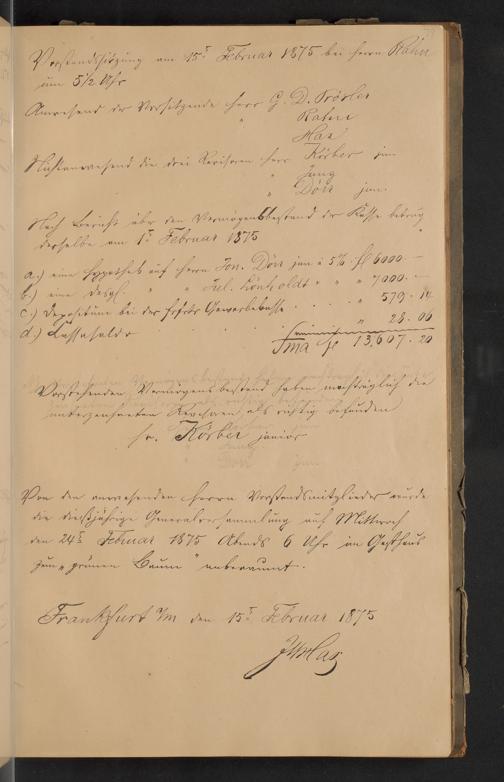 Vorstandssitzung am 15ᵗ Februar 1875 bei Herrn Rahn
um 5 1/2 Uhr
Anwesend der Vorsitzende Herr G. D. Brösler
" Rahn
" Har
Nichtanwesend die drei Revisoren Herr Körber jun
" Jung
" Dörr jun.
Nach Bericht über den Vermögensbestand der Kasse betrug
derselbe am 1ᵗ Februar 1875
a.) eine Hypothek auf Herrn Joh. Dörr jun à 5% fl 6000.—
b.) eine desgl. " " Jul. " " " 7000.—
c.) Depositum bei der Gewerbekasse . . . " 579. 14
d.) Kassasaldo . . . " 28. 06
Sma fl 13,607. 20
Vorstehenden Vermögensbestand haben nachträglich die
unterzeichneten Revisoren als richtig befunden
Körber junior
Von den anwesenden Herrn Vorstandsmitglieder wurde
die diesjährige Generalversammlung auf Mittwoch
den 24ᵗ Februar 1875 Abends 6 Uhr im Gasthaus
zum „grünen Baum" anberaumt.
Frankfurt a/M den 15ᵗ Februar 1875